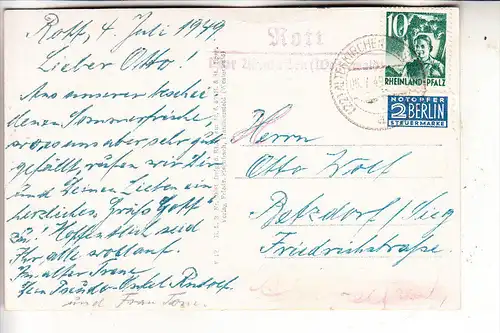 Rott, 4. Juli 1949
Lieber Otto!
Aus unserer beschei-
denen Sommerfrische,
wo es uns aber sehr gut
gefällt, rufen wir Dir
und Deinen Lieben ein
herzliches „Grüß Gott"
zu! Hoffentlich seid
Ihr alle wohlauf.
Dein Pseudo-Onkel Rudolf.
und Frau
Rott
ALTENKIRCHEN
10
RHEINLAND-PFALZ
NOTOPFER
2 BERLIN
STEUERMARKE
Herrn
Otto Wolf
Betzdorf/Sieg
Friedrichstraße